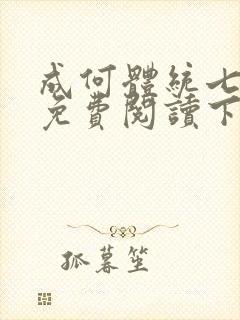 成何體統七
免費閱讀下
孤暮笙